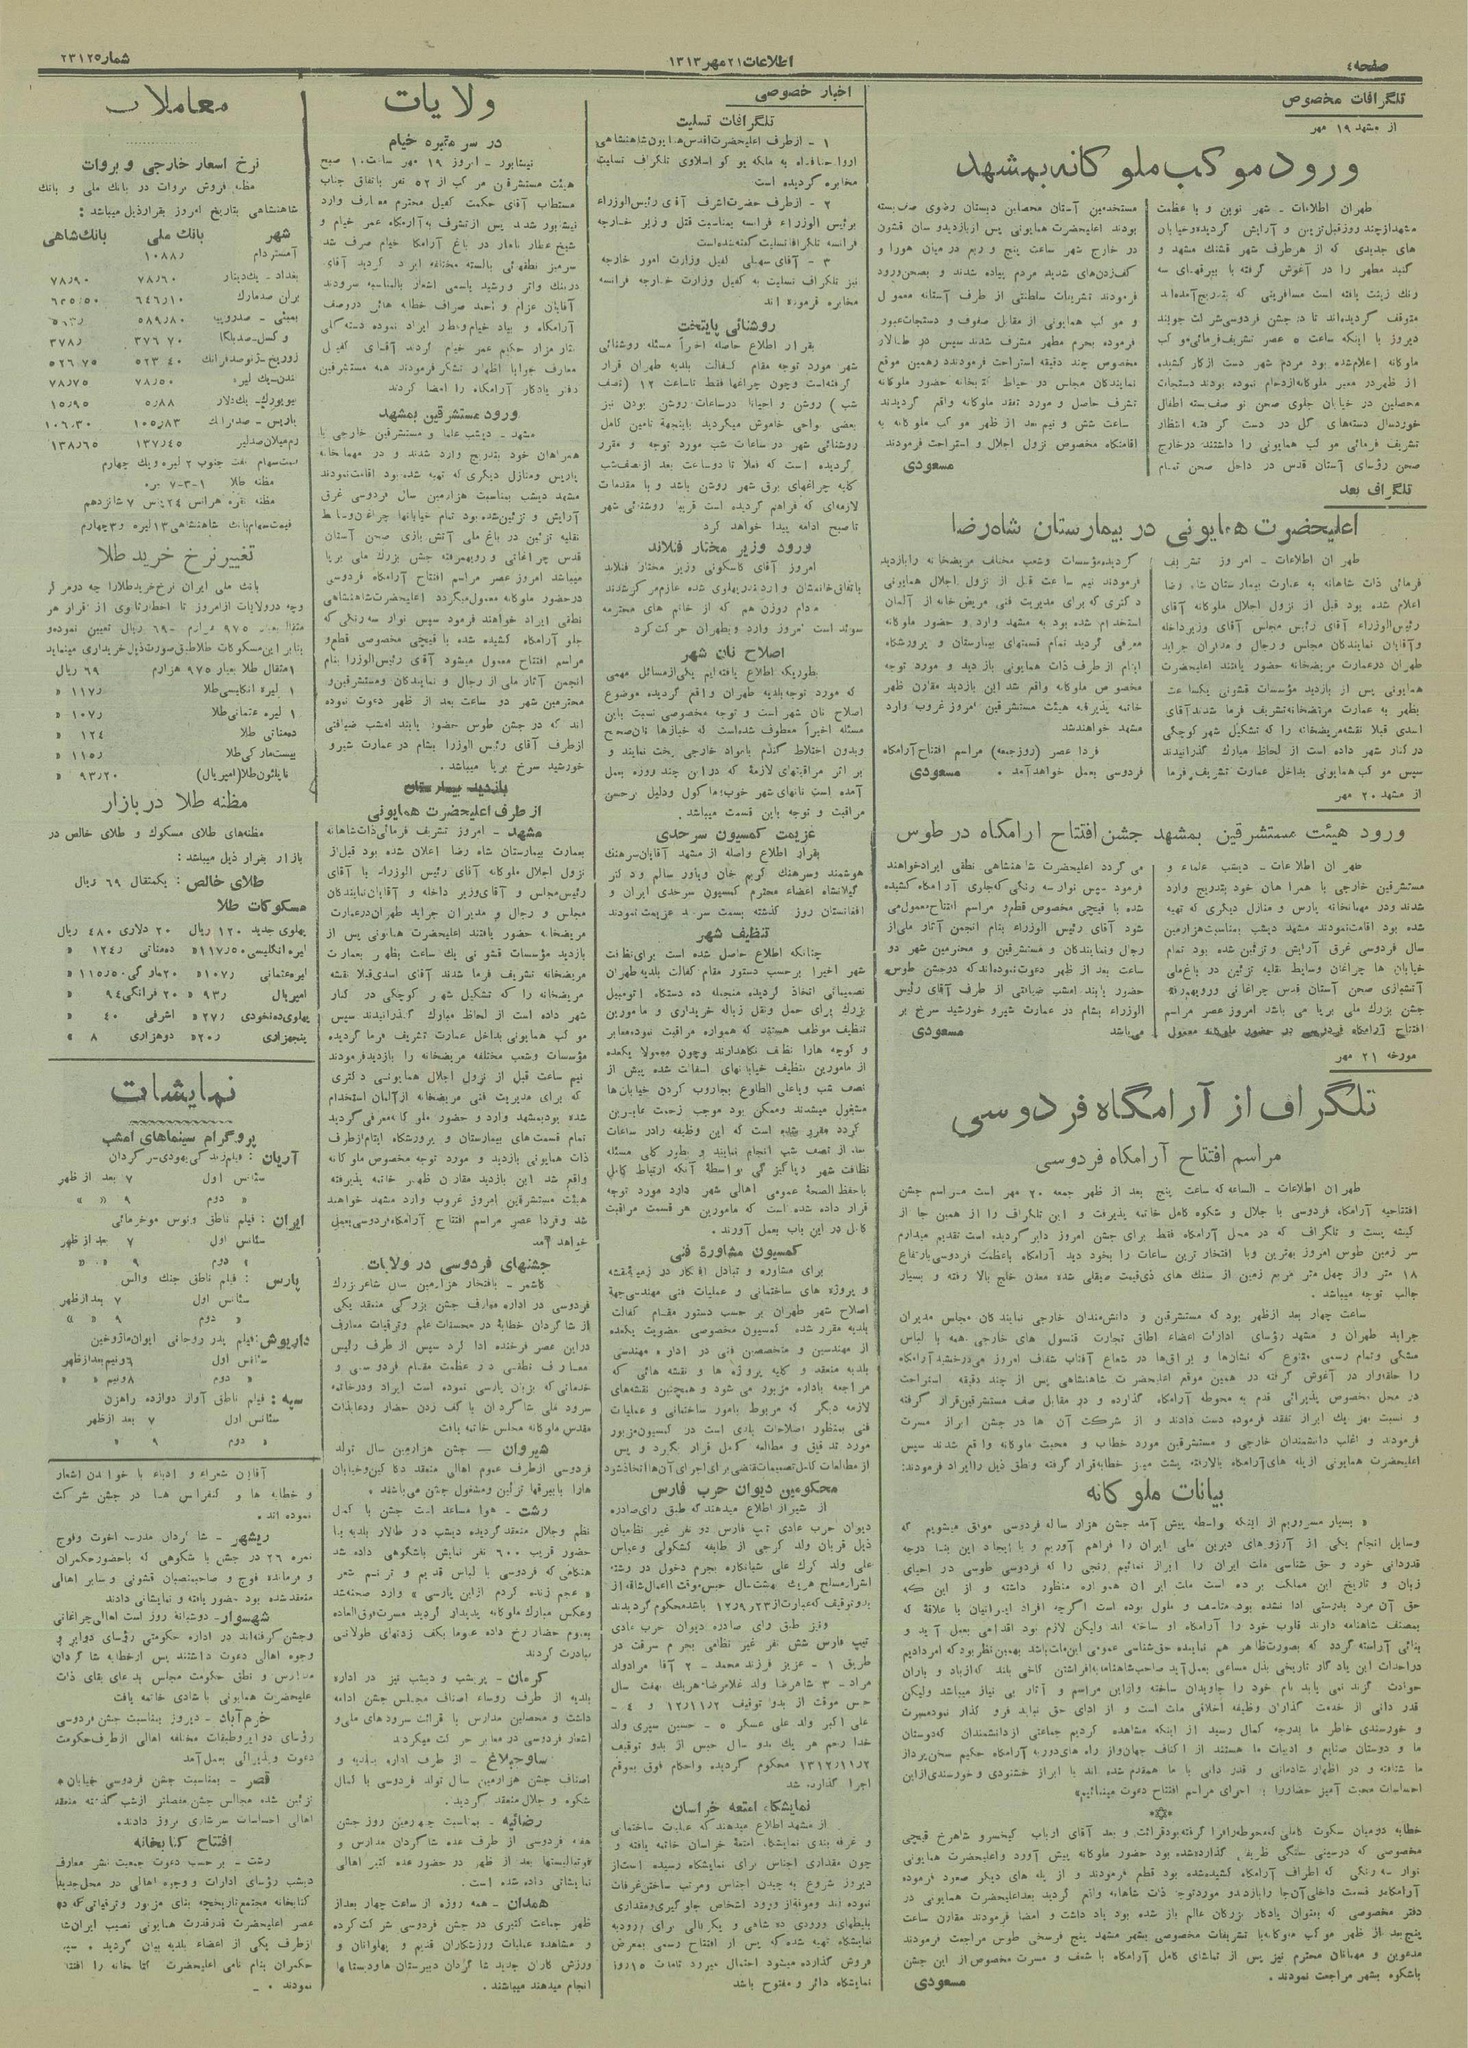 صفحه ٤
اطلاعات ٢١ مهر ١٣١٣
شمار ٢٣١٢٥
تلگرافات مخصوص
از مشهد ١٩ مهر
ورود موکب ملوکانه بمشهد
طهران اطلاعات - شهر نوین و با عظمت
مشهد از چند روز قبل تزیین و آرایش گردیده و خیابان
های جدیدی که از هر طرف شهر قشنك مشهد و
گنبد مطهر را در آغوش گرفته با بیرقهای سه
رنك زینت یافته است مسافرینی که بتدریج آمده اند
متوقف گردیده اند تا در جشن فردوسی شرکت جویند
دیروز با اینکه ساعت ٥ عصر تشریف فرمائی موکب
ملوکانه اعلام شده بود مردم شهر دست از کار کشیده
از ظهر در معبر ملوکانه ازدحام نموده بودند دستجات
محصلین در خیابان جلوی صحن نو صف بسته اطفال
خوردسال دسته های گل در دست گرفته انتظار
تشریف فرمائی موکب همایونی را داشتند در خارج
صحن رؤسای آستان قدس در داخل صحن تمام
مستخدمین آستان محصلین دبستان رضوی صف بسته
بودند اعلیحضرت همایونی پس از بازدید و سان قشون
در خارج شهر ساعت پنج و ربع در میان هورا و
کف زدن های شدید مردم پیاده شدند و بصحن ورود
فرمودند تشریفات سلطنتی از طرف آستانه معمول
و موکب همایونی از مقابل صفوف و دستجات عبور
فرموده بحرم مطهر مشرف شدند سپس در طالار
مخصوص چند دقیقه استراحت فرمودند در همین موقع
نمایندگان مجلس در حیاط کتابخانه حضور ملوکانه
تشرف حاصل و مورد تفقد ملوکانه واقع گردیدند
ساعت شش و نیم بعد از ظهر موکب ملوکانه به
اقامتگاه مخصوص نزول اجلال و استراحت فرمودند
مسعودی
تلگراف بعد
اعلیحضرت همایونی در بیمارستان شاه رضا
طهران اطلاعات - امروز تشریف
فرمائی ذات شاهانه به عمارت بیمارستان شاه رضا
اعلام شده بود قبل از نزول اجلال ملوکانه آقای
رئیس الوزراء آقای رئیس مجلس آقای وزیر داخله
و آقایان نمایندگان مجلس و رجال و مدیران جراید
طهران در عمارت مریضخانه حضور یافتند اعلیحضرت
همایونی پس از بازدید مؤسسات قشونی یکساعت
بظهر به عمارت مریضخانه تشریف فرما شدند آقای
اسدی قبلا نقشه مریضخانه را که تشکیل شهر کوچکی
در کنار شهر داده است از لحاظ مبارك گذرانیدند
سپس موکب همایونی بداخل عمارت تشریف فرما
گردیده مؤسسات وشعب مختلف مریضخانه را بازدید
فرمودند نیم ساعت قبل از نزول اجلال همایونی
دکتری که برای مدیریت فنی مریض خانه از آلمان
استخدام شده بود به مشهد وارد و حضور ملوکانه
معرفی گردید تمام قسمتهای بیمارستان و پرورشگاه
ایتام از طرف ذات همایونی بازدید و مورد توجه
مخصوص ملوکانه واقع شد این بازدید مقارن ظهر
خاتمه پذیرفت هیئت مستشرقین امروز غروب وارد
مشهد خواهند شد
فردا عصر (روز جمعه) مراسم افتتاح آرامگاه
فردوسی بعمل خواهد آمد . مسعودی
از مشهد ٢٠ مهر
ورود هیئت مستشرقین بمشهد جشن افتتاح ارامگاه در طوس
طهران اطلاعات - دیشب علماء و
مستشرقین خارجی با همراهان خود بتدریج وارد
شدند و در مهمانخانه پارس و منازل دیگری که تهیه
شده بود اقامت نمودند مشهد دیشب بمناسبت هزارمین
سال فردوسی غرق آرایش و تزئین شده بود تمام
خیابان ها چراغان وسایط نقلیه تزئین در باغ ملی
آتشبازی صحن آستان قدس چراغانی و رویهمرفته
جشن بزرك ملی برپا می باشد امروز عصر مراسم
افتتاح آرامگاه فردوسی در حضور ملوکانه معمول
می گردد اعلیحضرت شاهنشاهی نطقی ایراد خواهند
فرمود سپس نوار سه رنگی که جلوی آرامگاه کشیده
شده با قیچی مخصوص قطع و مراسم افتتاح معمول می
شود آقای رئیس الوزراء بنام انجمن آثار ملی از
رجال و نمایندگان و مستشرقین و محترمین شهر دو
ساعت بعد از ظهر دعوت نموده اند که در جشن طوس
حضور یابند امشب ضیافتی از طرف آقای رئیس
الوزراء بشام در عمارت شیر و خورشید سرخ بر پا
می باشد مسعودی
مورخه ٢١ مهر
تلگراف از آرامگاه فردوسی
مراسم افتتاح آرامگاه فردوسی
طهران اطلاعات - الساعه که ساعت پنج بعد از ظهر جمعه ٢٠ مهر است مراسم جشن
افتتاحیه آرامگاه فردوسی با جلال و شکوه کامل خاتمه پذیرفت و این تلگراف را از همین جا از
کیشه پست و تلگراف که در محل آرامگاه فقط برای جشن امروز دایر گردیده است تقدیم میدارم
سر زمین طوس امروز بهترین و با افتخار ترین ساعات را بخود دید آرامگاه باعظمت فردوسی بارتفاع
١٨ متر و از چهل متر مربع زمین از سنك های ذی قیمت صیقلی شده معدن خلج بالا رفته و بسیار
جالب توجه میباشد .
ساعت چهار بعد از ظهر بود که مستشرقین و دانشمندان خارجی نمایندگان مجلس مدیران
جراید طهران و مشهد رؤسای ادارات اعضاء اطاق تجارت قنسول های خارجی همه با لباس
مشکی و تمام رسمی متنوع که نشان ها و یراق ها در شعاع آفتاب شفاف امروز می درخشید آرامگاه
را حلقه وار در آغوش گرفته در همین موقع اعلیحضرت شاهنشاهی پس از چند دقیقه استراحت
در محل مخصوص پذیرائی قدم به محوطه آرامگاه گذارده و در مقابل صف مستشرقین قرار گرفته
و نسبت بهر یك ابراز تفقد فرموده دست دادند و از شرکت آن ها در جشن ابراز مسرت
فرمودند و اغلب دانشمندان خارجی و مستشرقین مورد خطاب و محبت ملوکانه واقع شدند سپس
اعلیحضرت همایونی از پله های آرامگاه بالا رفته پشت میز خطابه قرار گرفته و نطق ذیل را ایراد فرمودند:
بیانات ملوکانه
« بسیار مسروریم از اینکه بواسطه پیش آمد جشن هزار ساله فردوسی موفق میشویم که
وسایل انجام یکی از آرزوهای دیرین ملی ایران را فراهم آوریم و با ایجاد این بنا درجه
قدردانی خود و حق شناسی ملت ایران را ابراز نمائیم رنجی را که فردوسی طوسی در احیای
زبان و تاریخ این مملکت برده است ملت ایران همواره منظور داشته و از این که
حق آن مرد بدرستی ادا نشده بود متاسف و ملول بوده است اگرچه افراد ایرانیان با علاقه که
بمصنف شاهنامه دارند قلوب خود را آرامگاه او ساخته اند ولیکن لازم بود اقدامی بعمل آید و
بنائی آراسته گردد که بصورت ظاهر هم نماینده حق شناسی عمومی این ملت باشد بهمین نظر بود که امر دادیم
در احداث این یادگار تاریخی بذل مساعی بعمل آید صاحب شاهنامه با افراشتن کاخی بلند که از باد و باران
حوادث گزند نمی یابد نام خود را جاویدان ساخته و از این مراسم و آثار بی نیاز میباشد ولیکن
قدر دانی از خدمت گذاران وظیفه اخلاقی ملت است و از ادای حق نباید فرو گذار نمود مسرت
و خورسندی خاطر ما بدرجه کمال رسید از اینکه مشاهده کردیم جماعتی از دانشمندان که دوستان
ما و دوستان صنایع و ادبیات ما هستند از اکناف جهان و از راه های دور به آرامگاه حکیم سخن پرداز
ما شتافته و در اظهار شادمانی و قدر دانی با ما همقدم شده اند با ابراز خشنودی و خورسندی از این
احساسات محبت آمیز حضار را به اجرای مراسم افتتاح دعوت مینمائیم»
خطابه در میان سکوت کاملی که محوطه را فرا گرفته بود قرائت و بعد آقای ارباب کیخسرو شاهرخ قیچی
مخصوصی که در سینی سنگی ظریفی گذارده شده بود حضور ملوکانه پیش آورد و اعلیحضرت همایونی
نوار سه رنگی که اطراف آرامگاه کشیده شده بود قطع فرمودند و از پله های دیگر صعود فرموده
آرامگاه و قسمت داخلی آن جا را بازدید و مورد توجه ذات شاهانه واقع گردید بعد اعلیحضرت همایونی در
دفتر مخصوصی که بعنوان یادگار بزرگان عالم باز شده بود یاد داشت و امضا فرمودند مقارن ساعت
پنج بعد از ظهر موکب ملوکانه با تشریفات مخصوصی بشهر مشهد پنج فرسخی طوس مراجعت فرمودند
مدعوین و مهمانان محترم نیز پس از تماشای کامل آرامگاه با شعف و مسرت مخصوص از این جشن
باشکوه بشهر مراجعت نمودند . مسعودی
اخبار خصوصی
تلگرافات تسلیت
١ - از طرف اعلیحضرت اقدس همایون شاهنشاهی
ارواحنا فداه به ملکه یوگو اسلاوی تلگراف تسلیت
مخابره گردیده است
٢ - از طرف حضرت اشرف آقای رئیس الوزراء
برئیس الوزراء فرانسه بمناسبت قتل وزیر خارجه
فرانسه تلگرافا تسلیت گفته شده است
٣ - آقای سهیلی کفیل وزارت امور خارجه
نیز تلگراف تسلیت به کفیل وزارت خارجه فرانسه
مخابره فرموده اند
روشنائی پایتخت
بقرار اطلاع حاصله اخیراً مسئله روشنائی
شهر مورد توجه مقام کفالت بلدیه طهران قرار
گرفته است و چون چراغها فقط تا ساعت ١٢ (نصف
شب) روشن و احیانا در ساعات روشن بودن نیز
بعضی نواحی خاموش میگردید باینجهة تامین کامل
روشنائی شهر در ساعات شب مورد توجه و مقرر
گردیده است که فعلا تا دو ساعت بعد از نصف شب
کلیه چراغهای برق شهر روشن باشد و با مقدمات
لازمه ای که فراهم گردیده است قریبا روشنائی شهر
تا صبح ادامه پیدا خواهد کرد
ورود وزیر مختار فنلاند
امروز آقای کاسکونی وزیر مختار فنلاند
باتفاق خانمشان وارد بندر پهلوی شده عازم مرکز شدند
مادام روزن هم که از خانم های محترمه
سوئد است امروز وارد و بطهران حرکت کرد
اصلاح نان شهر
بطوریکه اطلاع یافته ایم یکی از مسائل مهمی
که مورد توجه بلدیه طهران واقع گردیده موضوع
اصلاح نان شهر است و توجه مخصوصی نسبت باین
مسئله اخیراً معطوف شده است که خبازها نان صحیح
و بدون اختلاط گندم با مواد خارجی پخت نمایند و
بر اثر مراقبتهای لازمه که در این چند روزه بعمل
آمده است نانهای شهر خوب ، ماکول و دلیل بر حسن
مراقبت و توجه باین قسمت میباشد .
عزیمت کمسیون سرحدی
بقرار اطلاع واصله از مشهد آقایان سرهنك
هوشمند و سرهنك کریم خان و یاور سالم و دکتر
گیلانشاه اعضاء محترم کمسیون سرحدی ایران و
افغانستان روز گذشته بسمت سرحد عزیمت نمودند
تنظیف شهر
چنانکه اطلاع حاصل شده است برای نظافت
شهر اخیرا برحسب دستور مقام کفالت بلدیه طهران
تصمیماتی اتخاذ گردیده منجمله ده دستگاه اتومبیل
بزرك برای حمل و نقل زباله خریداری و مامورین
تنظیف موظف هستند که همواره مراقبت نموده معابر
و کوچه ها را نظیف نگاهدارند و چون معمولا یکعده
از مامورین تنظیف خیابانهای اسفالت شده پیش از
نصف شب و یا علی الطلوع بجاروب کردن خیابان ها
مشغول میشدند و ممکن بود موجب زحمت عابرین
گردد مقرر شده است که این وظیفه را در ساعات
بعد از نصف شب انجام نمایند و بطور کلی مسئله
نظافت شهر و پاکیزگی بواسطهٔ آنکه ارتباط کامل
با حفظ الصحهٔ عمومی اهالی شهر دارد مورد توجه
قرار داده شده است که مامورین هر قسمت مراقبت
کامل در این باب بعمل آورند .
کمسیون مشاوره فنی
برای مشاوره و تبادل افکار در زمینهٔ نقشه
و پروژه های ساختمانی و عملیات فنی مهندسی جههٔ
اصلاح شهر طهران بر حسب دستور مقام کفالت
بلدیه مقرر شده کمسیون مخصوصی بعضویت یکعده
از مهندسین و متخصصین فنی در اداره مهندسی
بلدیه منعقد و کلیه پروژه ها و نقشه هائی که
مراجعه باداره مزبور می شود و همچنین نقشه های
لازمه دیگر که مربوط بامور ساختمانی و عملیات
فنی بمنظور اصلاحات بلدی است در کمسیون مزبور
مورد تدقیق و مطالعه کامل قرار بگیرد و پس
از مطالعات کامل تصمیمات مقتضی برای اجرای آن ها اتخاذ شود
محکومین دیوان حرب فارس
از شیراز اطلاع میدهند که طبق رای صادره
دیوان حرب عادی تیپ فارس دو نفر غیر نظامیان
ذیل قربان ولد کرجی از طایفه کشکولی و عباس
علی ولد کرك علی شبانکاره بجرم دخول در رشته
اشرار مسلح هریك بهشت سال حبس موقت با اعمال شاقه از
بدو توقیف که عبارت از ١٢٫٩٫٢٣ باشد محکوم گردیدند
و نیز طبق رای صادره دیوان حرب عادی
تیپ فارس شش نفر غیر نظامی بجرم سرقت در
طریق ١ - عزیز فرزند محمد - ٢ آقا مراد ولد
مراد - ٣ شاهرضا ولد غلامرضا هریك بهفت سال
حبس موقت از بدو توقیف ١٢/١١/٢ و ٤ -
علی اکبر ولد علی عسکر ٥ - حسین سپری ولد
خدا رحم هر یك بدو سال حبس از بدو توقیف
١٣١٢/١١/٢ محکوم گردیده و احکام فوق بموقع
اجرا گذارده شد
نمایشگاه امتعه خراسان
از مشهد اطلاع میدهند که عملیات ساختمانی
و غرفه بندی نمایشگاه امتعهٔ خراسان خاتمه یافته و
چون مقداری اجناس برای نمایشگاه رسیده است از
دیروز شروع به چیدن اجناس و مرتب ساختن غرفات
نموده اند و موقةً از ورود اشخاص جلوگیری و مقداری
بلیطهای ورودی ده شاهی و یکریالی برای ورود به
نمایشگاه تهیه شده که پس از افتتاح رسمی بمعرض
فروش گذارده میشود احتمال میرود تا مدت ١٥ روز
نمایشگاه دائر و مفتوح باشد
ولایات
در سر مقبره خیام
نیشابور - امروز ١٩ مهر ساعت ١٠ صبح
هیئت مستشرقین مرکب از ٥٢ نفر باتفاق جناب
مستطاب آقای حکمت کفیل محترم معارف وارد
نیشابور شدند پس از تشرف به آرامگاه عمر خیام و
شیخ عطار ناهار در باغ آرامگاه خیام صرف شد
سرمیز نطقهائی بالسنه مختلفه ایراد گردید آقای
درینك واتر و رشید یاسمی اشعار بالمناسبه سرودند
آقایان عزام و احمد صراف خطابه هائی در وصف
آرامگاه و بیاد خیام و عطار ایراد نموده دسته گلی
نثار مزار حکیم عمر خیام کردند آقای کفیل
معارف جوابا اظهار تشکر فرمودند همه مستشرقین
دفتر یادگار آرامگاه را امضا کردند
ورود مستشرقین بمشهد
مشهد - دیشب علما و مستشرقین خارجی با
همراهان خود بتدریج وارد شدند و در مهمانخانه
پارس و منازل دیگری که تهیه شده بود اقامت نمودند
مشهد دیشب بمناسبت هزارمین سال فردوسی غرق
آرایش و تزئین شده بود تمام خیابانها چراغان وسایط
نقلیه تزئین در باغ ملی آتش بازی صحن آستان
قدس چراغانی و رویهمرفته جشن بزرك ملی برپا
میباشد امروز عصر مراسم افتتاح آرامگاه فردوسی
در حضور ملوکانه معمول میگردد اعلیحضرت شاهنشاهی
نطقی ایراد خواهند فرمود سپس نوار سه رنگی که
جلو آرامگاه کشیده شده با قیچی مخصوصی قطع و
مراسم افتتاح معمول میشود آقای رئیس الوزرا بنام
انجمن آثار ملی از رجال و نمایندگان و مستشرقین و
محترمین شهر دو ساعت بعد از ظهر دعوت نموده
اند که در جشن طوس حضور یابند امشب ضیافتی
از طرف آقای رئیس الوزرا بشام در عمارت شیر و
خورشید سرخ برپا میباشد .
بازدید بیمارستان
از طرف اعلیحضرت همایونی
مشهد - امروز تشریف فرمائی ذات شاهانه
بعمارت بیمارستان شاه رضا اعلان شده بود قبل از
نزول اجلال ملوکانه آقای رئیس الوزراء با آقای
رئیس مجلس و آقای وزیر داخله و آقایان نمایندگان
مجلس و رجال و مدیران جراید طهران در عمارت
مریضخانه حضور یافتند اعلیحضرت همایونی پس از
بازدید مؤسسات قشونی یك ساعت بظهر بعمارت
مریضخانه تشریف فرما شدند آقای اسدی قبلا نقشه
مریضخانه را که تشکیل شهر کوچکی در کنار
شهر داده است از لحاظ مبارك گذرانیدند سپس
موکب همایونی بداخل عمارت تشریف فرما گردیده
مؤسسات وشعب مختلفه مریضخانه را بازدید فرمودند
نیم ساعت قبل از نزول اجلال همایونی دکتری
که برای مدیریت فنی مریضخانه از آلمان استخدام
شده بود بمشهد وارد و حضور ملوکانه معرفی گردید
تمام قسمت های بیمارستان و پرورشگاه ایتام از طرف
ذات همایونی بازدید و مورد توجه مخصوص ملوکانه
واقع شد این بازدید مقارن ظهر خاتمه پذیرفته
هیئت مستشرقین امروز غروب وارد مشهد خواهند
شد و فردا عصر مراسم افتتاح آرامگاه فردوسی بعمل
خواهد آمد
جشنهای فردوسی در ولایات
کاشمر - بافتخار هزارمین سال شاعر بزرك
فردوسی در اداره معارف جشن بزرگی منعقد یکی
از شاگردان خطابهٔ در محسنات علم و ترقیات معارف
در این عصر فرخنده ادا کرد سپس از طرف رئیس
معارف نطقی در عظمت مقام فردوسی و
خدماتی که بزبان پارسی نموده است ایراد و در خاتمه
سرود ملی شاگردان با کف زدن حضار و دعا بذات
مقدس ملوکانه مجلس خاتمه یافت
شیروان - جشن هزارمین سال تولد
فردوسی از طرف عموم اهالی منعقد دکاکین و خیابان
ها را با بیرقها تزئین و مشغول جشن می باشند .
رشت - هوا مساعد است جشن با کمال
نظم و جلال منعقد گردیده دیشب در طالار بلدیه با
حضور قریب ٦٠٠ نفر نمایش باشکوهی داده شد
هنگامی که فردوسی با لباس قدیم و ترنم شعر
« عجم زنده کردم از این پارسی » وارد صحنه شد
و عکس مبارك ملوکانه پدیدار گردید مسرت فوق العاده
بعموم حضار رخ داده عموما بکف زدنهای طولانی
مبادرت کردند
کرمان - پریشب و دیشب نیز در اداره
بلدیه از طرف روساء اصناف مجلس جشن ادامه
داشت و محصلین مدارس با قرائت سرودهای ملی و
اشعار فردوسی در معابر حرکت میکردند
ساوجبلاغ - از طرف اداره بلدیه و
اصناف جشن هزارمین سال تولد فردوسی با کمال
شکوه و جلال منعقد گردید .
رضائیه - بمناسبت چهارمین روز جشن
هفته فردوسی از طرف عده شاگردان مدارس و
فوتبالیستها بعد از ظهر در حضور عده کثیر اهالی
نمایشاتی داده شده است .
همدان - همه روزه از ساعت چهار بعد از
ظهر جماعت کثیری در جشن فردوسی شرکت کرده
و مشاهده عملیات ورزشکاران قدیم و پهلوانان و
ورزش کاران جدید شاگردان دبیرستان ها و دبستان ها
انجام میدهند میباشند .
معاملات
نرخ اسعار خارجی و بروات
مظنه فروش بروات در بانك ملی و بانك
شاهنشاهی بتاریخ امروز بقرار ذیل میباشد :
شهر بانك ملی بانك شاهی
آمستردام ١٠٨٨٫
بغداد - یكدینار ٧٨٫٦٠ ٧٨٫٩٠
برلن صد مارك ٦٤٦٫١٠ ٦٤٥٫٥٠
بمبئی - صد روپیه ٥٨٩٫٨٠ ٥١٣٫
بروکسل - صد بلگا ٣٧٦٫٧٠ ٣٧٨٫
زوریخ - ژنو صد فرانك ٥٢٣٫٤٠ ٥٢٦٫٧٥
لندن - یك لیره ٧٨٫٥٠ ٧٨٫٧٥
نیویورك - یك دلار ٥٫٨٨ ١٥٫٩٥
پاریس - صد فرانك ١٠٥٫٨٣ ١٠٦٫٣٠
رم میلان صد لیر ١٣٧٫٤٥ ١٣٨٫٦٥
قیمت سهام نفت جنوب ٢ لیره و یك چهارم
مظنه طلا ١-٣-٧ لیره
مظنه نقره هر انس ٢٤ پنس ٧ شانزدهم
قیمت سهام بانك شاهنشاهی ١٣ لیره و ٣ چهارم
تغییر نرخ خرید طلا
بانك ملی ایران نرخ خرید طلا را چه در مرکز
و چه در ولایات از امروز تا اخطار ثانوی از قرار هر
مثقال بعیار ٩٧٥ هزارم ٦٩ ریال تعیین نموده و
بنابر این مسکوکات طلا طبق صورت ذیل خریداری مینماید
١ مثقال طلا بعیار ٩٧٥ هزارم ٦٩ ریال
١ لیره انگلیسی طلا ١١٧٫ «
١ لیره عثمانی طلا ١٠٧٫ «
ده مناتی طلا ١٢٤ «
بیست مارکی طلا ١١٥٫ «
ناپلئون طلا (امپریال) ٩٣٫٢٠ «
مظنه طلا در بازار
مظنه های طلای مسکوك و طلای خالص در
بازار بقرار ذیل میباشد :
طلای خالص : یکمثقال ٦٩ ریال
مسکوکات طلا
پهلوی جدید ١٢٠ ریال ٢٠ دلاری ٤٨٠ ریال
لیره انگلیسی ١١٧٫٥٠ « ده مناتی ١٢٤٫ «
لیره عثمانی ١٠٧٫ « ٢٠ مارکی ١١٥٫٥٠ «
امپریال ٩٣٫ « ٢٠ فرانکی ٩٤ «
پهلوی ده نخودی ٢٧٫ « اشرفی ٤٠ «
پنجهزاری ٢٠٫ « دوهزاری ٨ «
نمایشات
پروگرام سینماهای امشب
آریان : فیلم زندگی یهودی سرگردان
سئانس اول ٧ بعد از ظهر
« دوم ٩ « «
ایران : فیلم ناطق ونوس موخرمائی
سئانس اول ٧ بعد از ظهر
« دوم ٩ « «
پارس : فیلم ناطق جنك والس
سئانس اول ٧ بعد از ظهر
« دوم ٩ « «
داریوش : فیلم پدر روحانی ایوان ماژوخین
سئانس اول ٦ و نیم بعد از ظهر
« دوم ٨ و نیم « «
سپه : فیلم ناطق آواز دوازده راهزن
سئانس اول ٧ بعد از ظهر
« دوم ٩ «
آقایان شعراء و ادباء با خواندن اشعار
و خطابه ها و کنفرانس ها در جشن شرکت
نموده اند .
ریشهر - شاگردان مدرسه اخوت و فوج
نمره ٢٦ در جشن با شکوهی که با حضور حکمران
و فرمانده فوج و صاحبمنصبان قشونی و سایر اهالی
منعقد شده بود حضور یافته و نمایشاتی دادند
شهسوار - دو شبانهٔ روز است اهالی چراغانی
و جشن گرفته اند در اداره حکومتی رؤسای دوایر و
وجوه اهالی دعوت داشتند پس از خطابه شاگردان
مدارس و نطق حکومت مجلس بدعای بقای ذات
علیحضرت همایونی با شادی خاتمه یافت
خرم آباد - دیروز بمناسبت جشن فردوسی
رؤسای دوایر و طبقات مختلفه اهالی از طرف حکومت
دعوت و پذیرائی بعمل آمد
قصر - بمناسبت جشن فردوسی خیابان ها
تزئین شده مجالس جشن مفصلتر از شب گذشته منعقد
اهالی احساسات سرشاری بروز دادند .
افتتاح کتابخانه
رشت - برحسب دعوت جمعیت نشر معارف
دیشب رؤسای ادارات و وجوه اهالی در محل جدید
کتابخانه مجتمع تاریخچه بنای مزبور و ترقیاتی که در
عصر اعلیحضرت قدرقدرت همایونی نصیب ایران شده
از طرف یکی از اعضاء بلدیه بیان گردید
حکمران بنام نامی اعلیحضرت کتابخانه را افتتاح
نمودند .